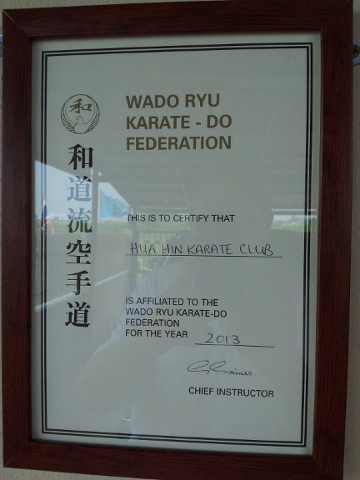 和
和道流空手道
WADO RYU
KARATE - DO
FEDERATION
THIS IS TO CERTIFY THAT
HUA HIN KARATE CLUB
IS AFFILIATED TO THE
WADO RYU KARATE-DO
FEDERATION
FOR THE YEAR 2013
CHIEF INSTRUCTOR